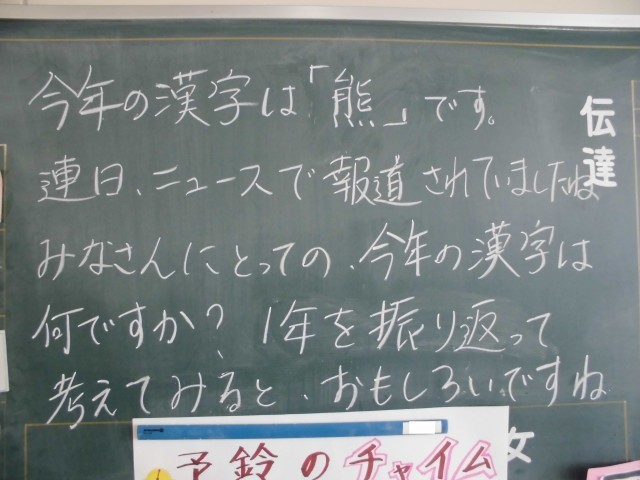 今年の漢字は「熊」です。
連日、ニュースで報道されていましたね
みなさんにとっての、今年の漢字は
何ですか？1年を振り返って
考えてみると、おもしろいですね
伝達
予鈴のチャイム
女